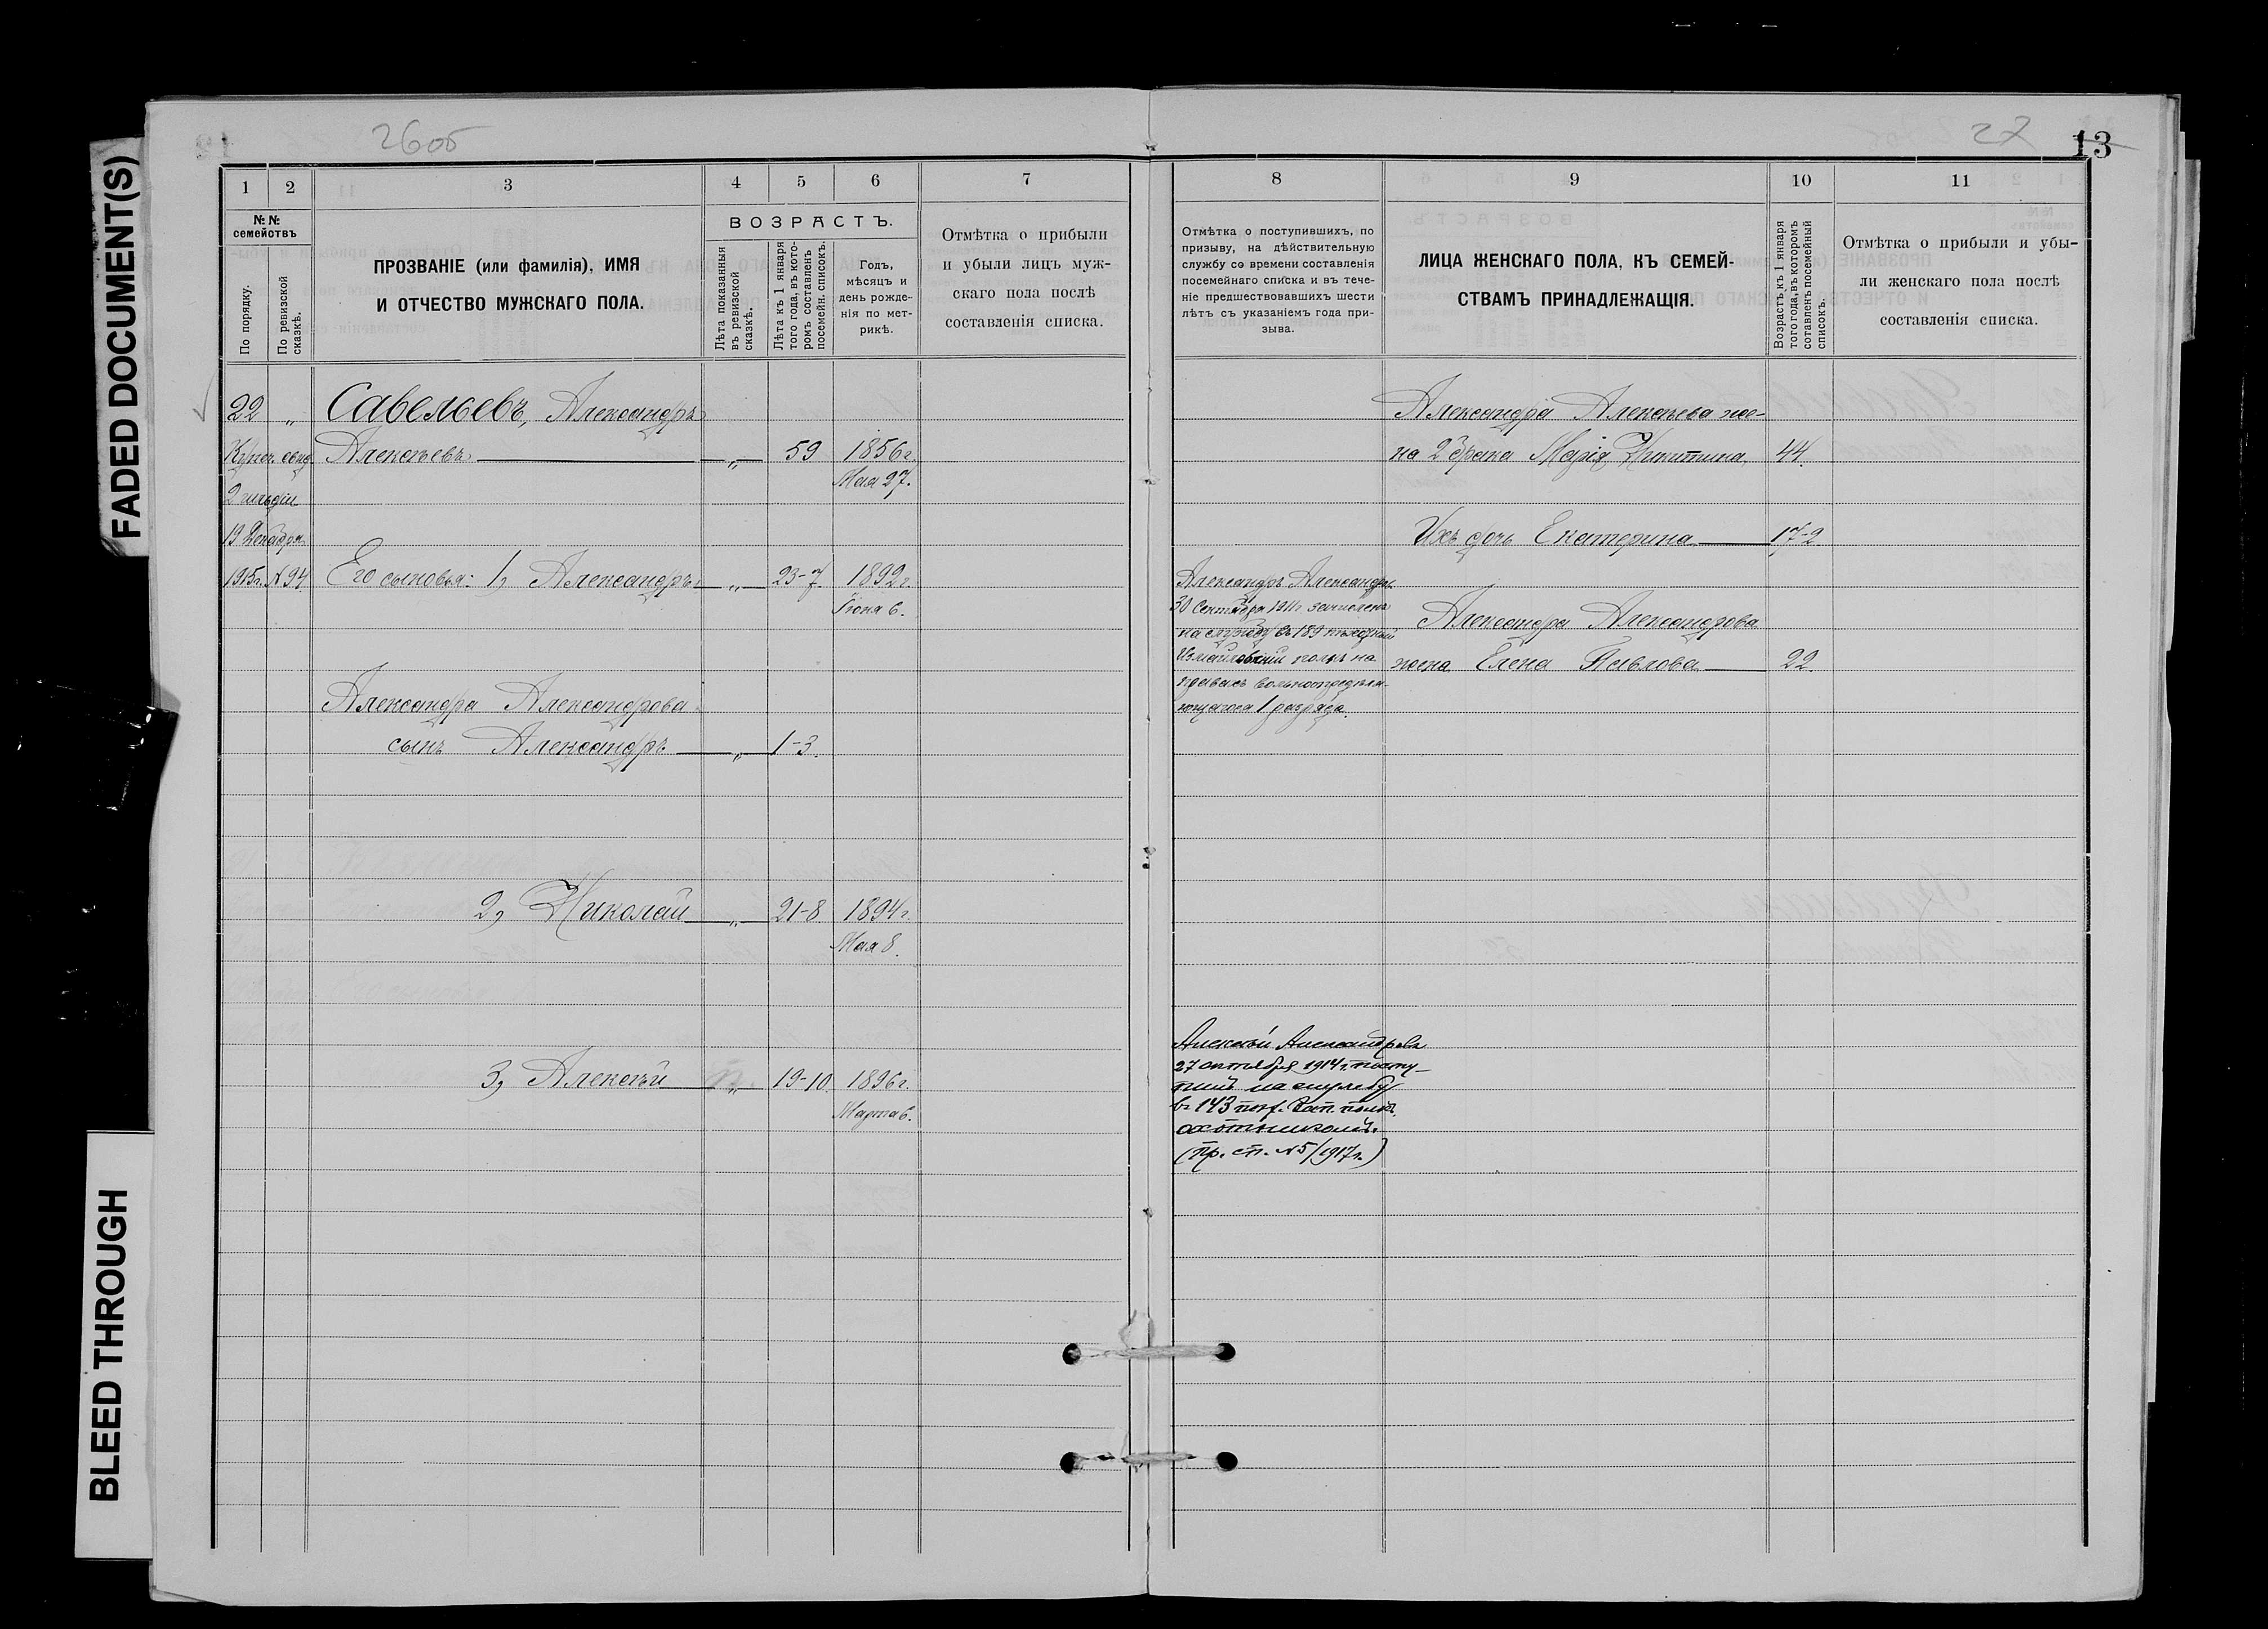 FADED DOCUMENT(S)
BLEED THROUGH
26об
27
13
1
2
3
4
5
6
7
№ №
семействъ
По порядку.
По ревизской
сказкѣ.
ПРОЗВАНІЕ (или фамилія), ИМЯ
И ОТЧЕСТВО МУЖСКАГО ПОЛА.
ВОЗРАСТЪ.
Лѣта показанныя
въ ревизской
сказкѣ.
Лѣта къ 1 января
того года, въ кото-
ромъ составленъ
посемейн. списокъ.
Годъ,
мѣсяцъ и
день рожде-
нія по мет-
рикѣ.
Отмѣтка о прибыли
и убыли лицъ муж-
скаго пола послѣ
составленія списка.
22 „ Савельевъ, Александръ
Купеч. свид. Алексѣевъ „ 59 1856 г.
2 гильдіи Мая 27.
19 Декабря
1915 г. № 94 Его сыновья: 1, Александръ „ 23-7. 1892 г.
Іюня 6.
Александра Александрова
сынъ Александръ „ 1-3.
2, Николай „ 21-8 1894 г.
Мая 8.
3, Алексѣй „ 19-10 1896 г.
Марта 6.
8
9
10
11
Отмѣтка о поступившихъ, по
призыву, на дѣйствительную
службу со времени составленія
посемейнаго списка и въ тече-
ніе предшествовавшихъ шести
лѣтъ съ указаніемъ года при-
зыва.
ЛИЦА ЖЕНСКАГО ПОЛА, КЪ СЕМЕЙ-
СТВАМЪ ПРИНАДЛЕЖАЩІЯ.
Возрастъ къ 1 января
того года, въ которомъ
составленъ посемейный
списокъ.
Отмѣтка о прибыли и убы-
ли женскаго пола послѣ
составленія списка.
Александра Алексѣева же-
на 2 брака Марія Никитина 44.
Ихъ дочь Екатерина 17-2
Александръ Александр.
30 Сентября 1911 г зачисленъ
на службу въ 189 пѣхотный
Измаильскій полкъ на
правахъ вольноопредѣля-
ющагося 1 разряда.
Александра Александрова
жена Елена Павлова 22.
Алексѣй Александровъ
27 октября 1914 г. посту-
пилъ на службу
въ 143 пѣх. Зап. полкъ
охотникомъ.
(Пр. ст. № 5/1917 г.)